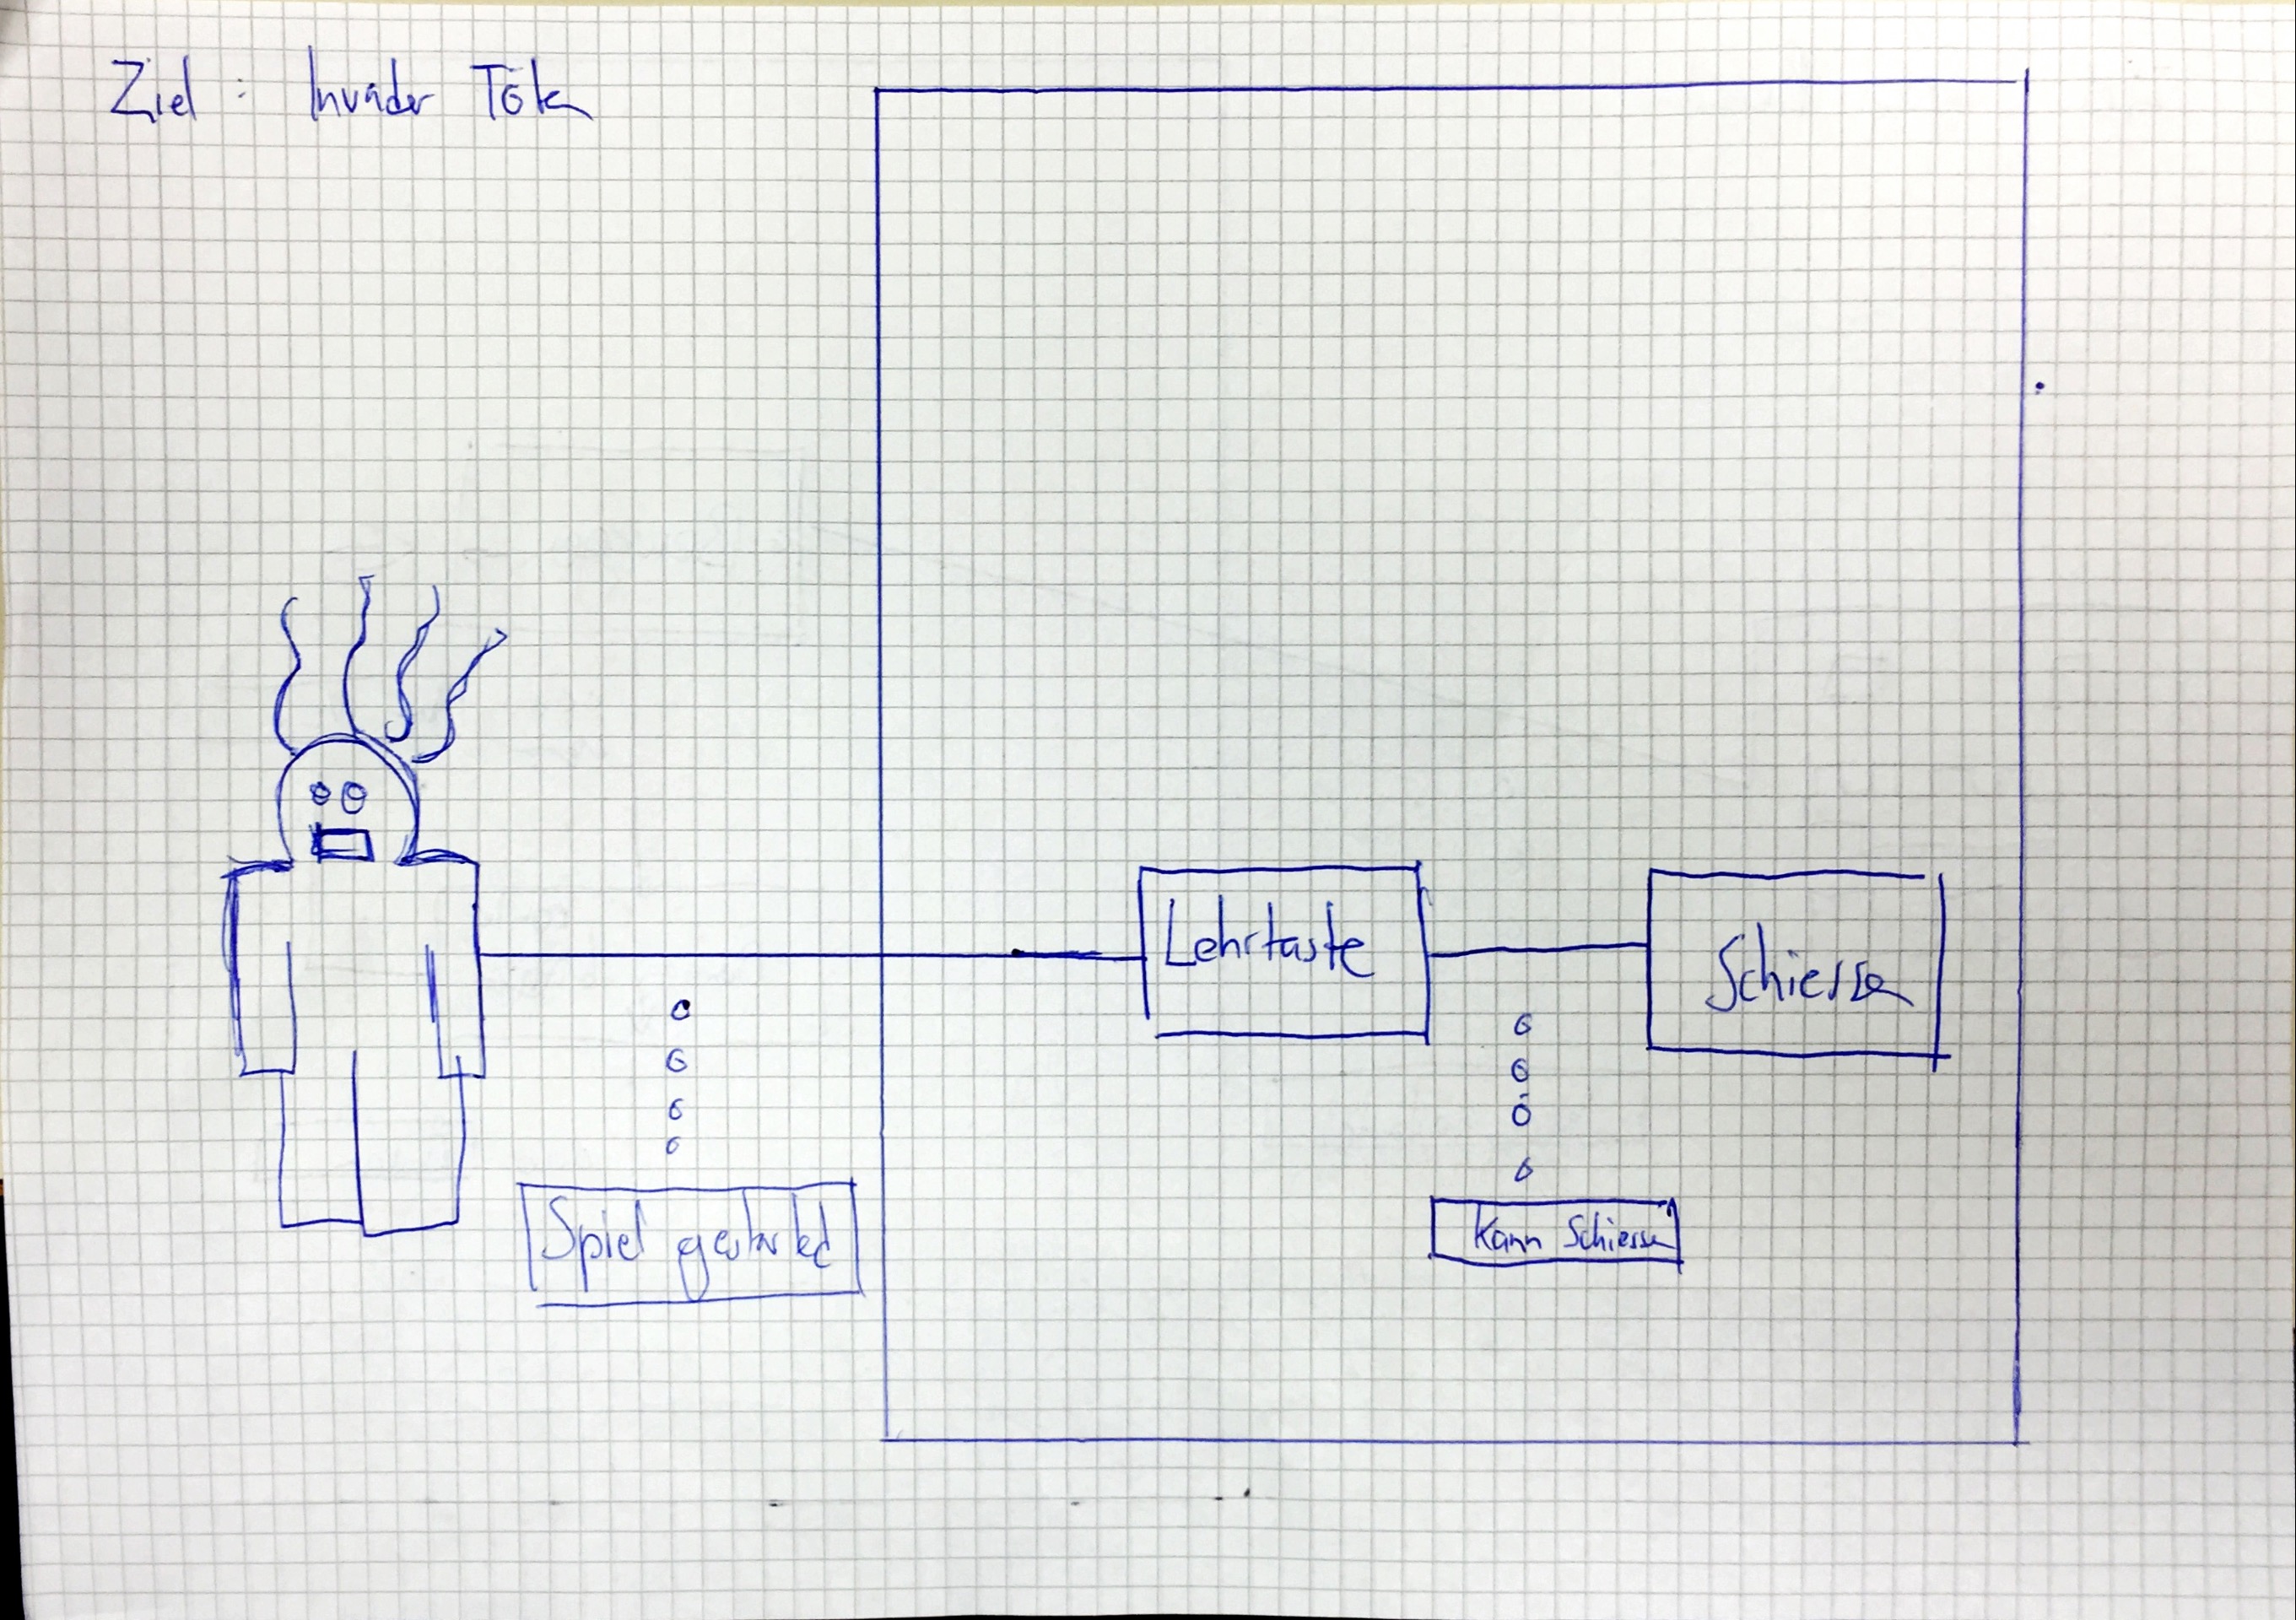 Ziel : Invader Töten
Lehrtaste
Schiessen
Spiel gestarted
Kann Schiessen